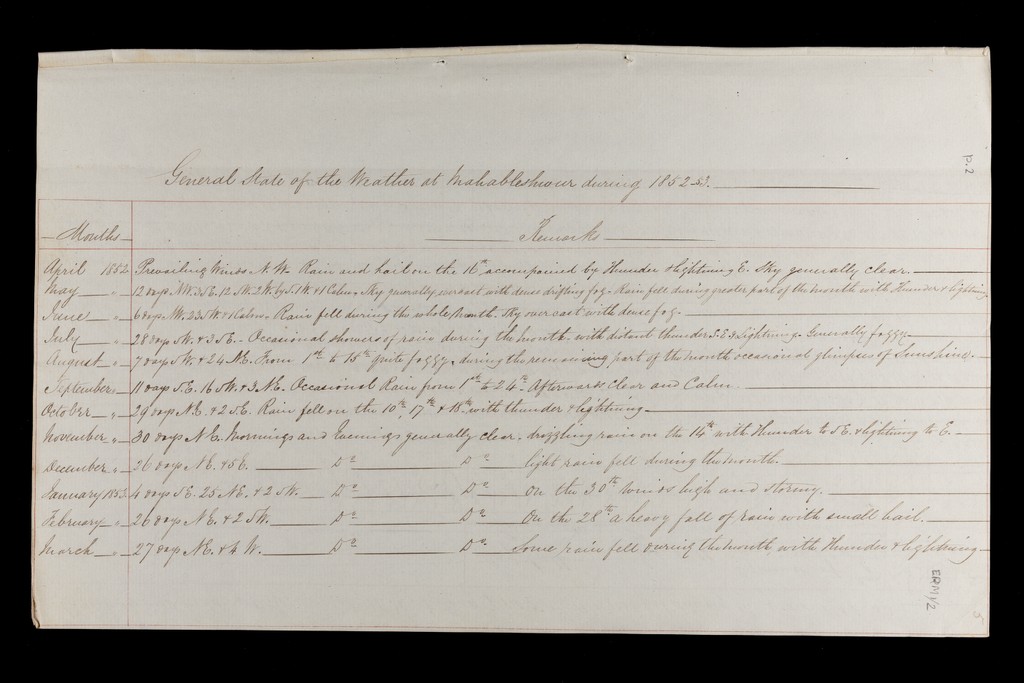 P.2
General State of the Weather at Mahableshwur during 1852-53.
Months Remarks
April 1852 Prevailing Winds N.W. Rain and hail on the 16th accompained by thunder & lightning E. Sky generally clear.
May " 12 days N.W. 3 S.E. 12 S.W. 2 W. by S. 1 W. & 1 Calm. Sky generally overcast with dense drifting fog. Rain fell during greater part of the month with thunder & lightning
June " 6 days W. 23 S.W. & 1 Calm. Rain fell during the whole month. Sky overcast with dense fog.
July " 28 days S.W. & 3 S.E. Occasional showers of rain during the month with distant thunder S.E. & lightning. Generally foggy.
August " 7 days S.W. & 24 N.E. From 1st to 15th quite foggy, during the remaining part of the month occasional glimpses of Sunshine.
September " 11 days S.E. 16 S.W. & 3 N.E. Occasional Rain from 1st to 24th Afterwards clear and Calm.
October " 29 days N.E. & 2 S.E. Rain fell on the 10th, 17th & 18th with thunder & lightning
November " 30 days N.E. Mornings and Evenings generally clear, drizzling rain on the 14th with thunder to S.E. & lightning to E.
December " 26 days N.E. & 5 E. Do Do light rain fell during the month.
January 1853 4 days S.E. 25 N.E. & 2 S.W. Do Do On the 30th winds high and stormy.
February " 26 days N.E. & 2 S.W. Do Do On the 28th a heavy fall of rain with small hail.
March " 27 days N.E. & 4 W. Do Do Some rain fell during the month with thunder & lightning
ERM 1/2